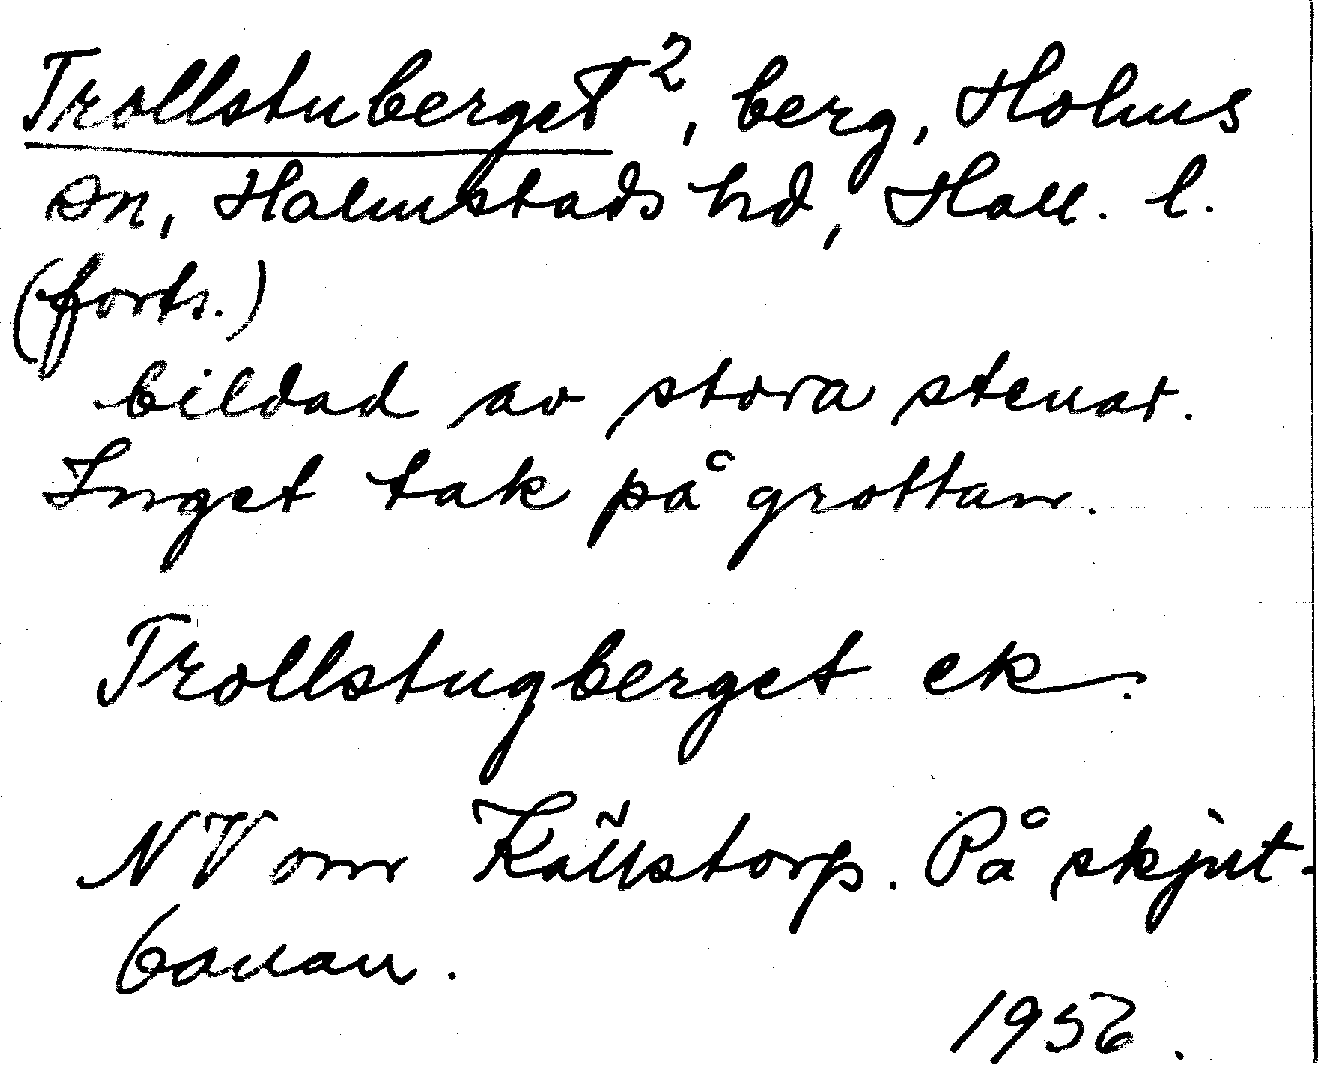 Trollstuberget², berg, Holms
sn, Halmstads hd, Hall. l.
(forts.)
bildad av stora stenar.
Inget tak på grottan.
Trollstugberget ek.
NV om Källstorp. På skjut-
banan.
1956.